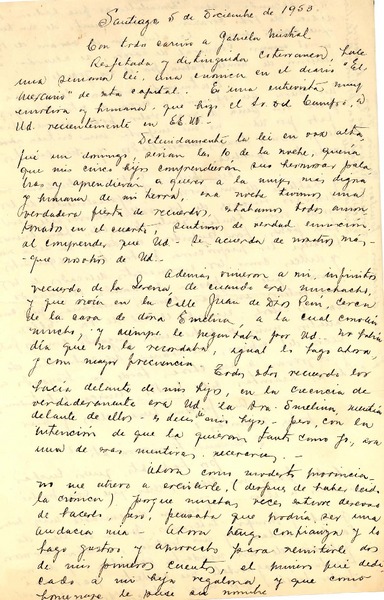 Santiago 5 de Diciembre de 1953
Con todo cariño a Gabriela Mistral
Respetada y distinguida coterranea, hace
una semana lei, una cronica en el diario "El
Mercurio" de esta capital. Es una entrevista muy
emotiva y humana, que hizo el Sr. del Campo, a
Ud. recientemente en EE.UU.
Detenidamente la lei en voz alta
fué un domingo, serian las 10 de la noche, queria
que mis cinco hijos comprendieran sus hermosas pala
bras y aprendieran a querer a la mujer mas digna
y humana de mi tierra, esa noche tuvimos una
verdadera fiesta de recuerdos, estabamos todos amon
tonados en el cuarto, sentimos de verdad emocion
al comprender que Ud. se acuerda de nosotros mas,
que nosotros de Ud.
Ademas vinieron a mi, infinitos
recuerdo de la Serena, de cuando era muchacho,
y que vivia en la Calle Juan de Dios Peni, cerca
de la casa de doña Emelina, a la cual conoci
mucho, y siempre le preguntaba por Ud. no habia
dia que no la recordaba, igual lo hago ahora
y con mayor frecuencia.
Todos estos recuerdo los
hacia delante de mis hijos, en la creencia de
verdaderamente era Ud. la Sra. Emelina, mentia
delante de ellos - es decir mis hijos - pero, con la
intencion de que la quieran tanto como yo, era
una de esas mentiras necesarias. -
Ahora como modesto provincia-
no me atrevo a escribirle, (despues de haber leido
la crónica) porque muchas veces estuve deseoso
de hacerlo, pero, pensaba que podria ser una
audacia mia - Ahora tengo confianza y lo
hago gustoso, y aprovecho para remitirle dos
de mis primeros cuentos, el primero fué dedi
cado a mi hija regalona, y que como
homenaje le puse su nombre